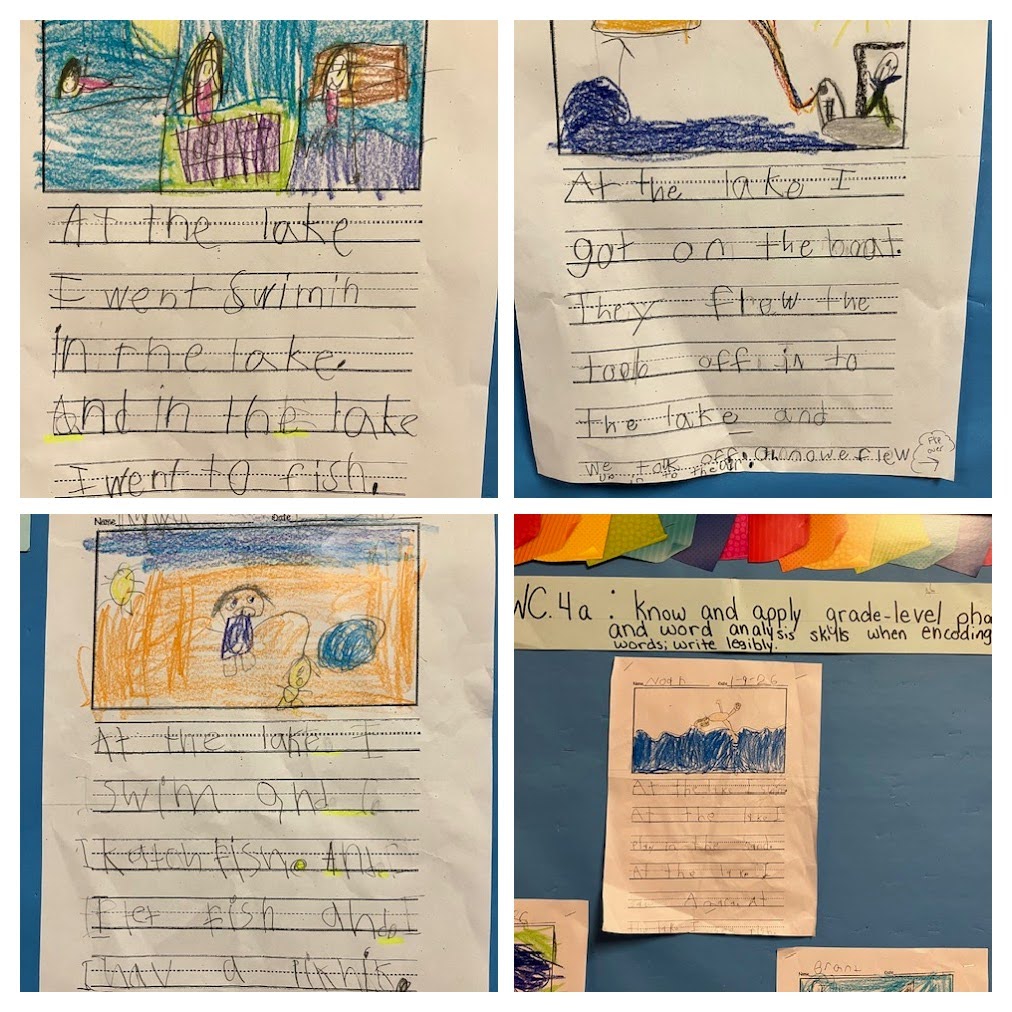 At the lake
I went Swimin
In the lake.
And in the lake
I went to fish.
At the lake I
got on the boat.
They flew the
toob off in to
the lake and
we tak off. An nowe flew
in to the
Flip
over
Name
Date
At the lake I
Swim and
I katch fish. And
fish and I
I hav a
WC.4a: Know and apply grade-level pho
and word analysis skills when encoding
words; write legibly.
Name Noah Date 1-9-26
At the lake I
At the lake I
in the
At the lake I
Again At
Brant